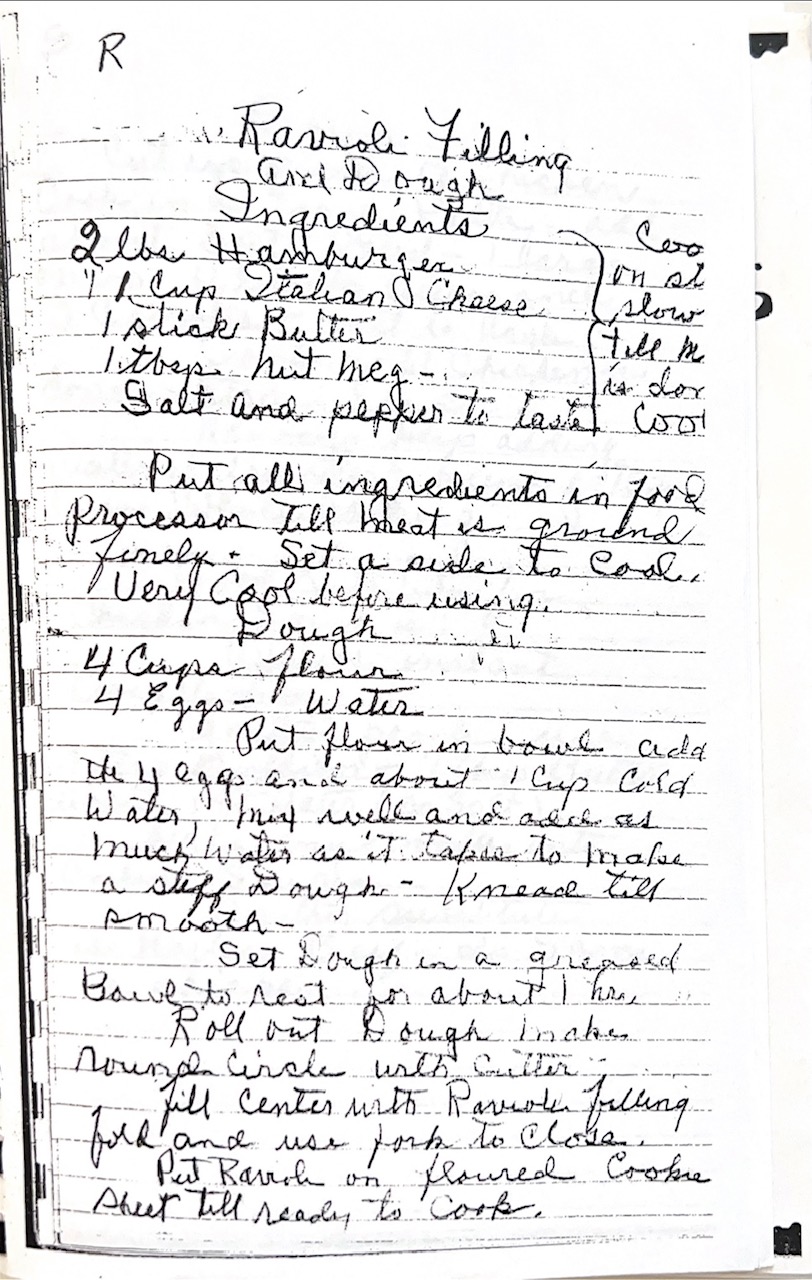 R
Ravioli Filling
And Dough
Ingredients
2 lbs Hamburger
1 Cup Italian Cheese
1 stick Butter
1 tbsp nut meg -
Salt and pepper to taste
Coo
on st
slow
till m
is don
Cool
Put all ingredients in food
Processor till meat is ground
finely. Set a side to Cool.
Very Cool before using.
Dough
4 Cups flour
4 Eggs - Water
Put flour in bowl add
the 4 eggs and about 1 Cup Cold
Water, mix well and add as
much Water as it takes to make
a stiff Dough - Knead till
smooth -
Set Dough in a greased
Bowl to rest for about 1 hr.
Roll out Dough make
round Circle with Cutter
fill Center with Ravioli filling
fold and use fork to Close.
Put Ravioli on floured Cookie
sheet till ready to Cook.